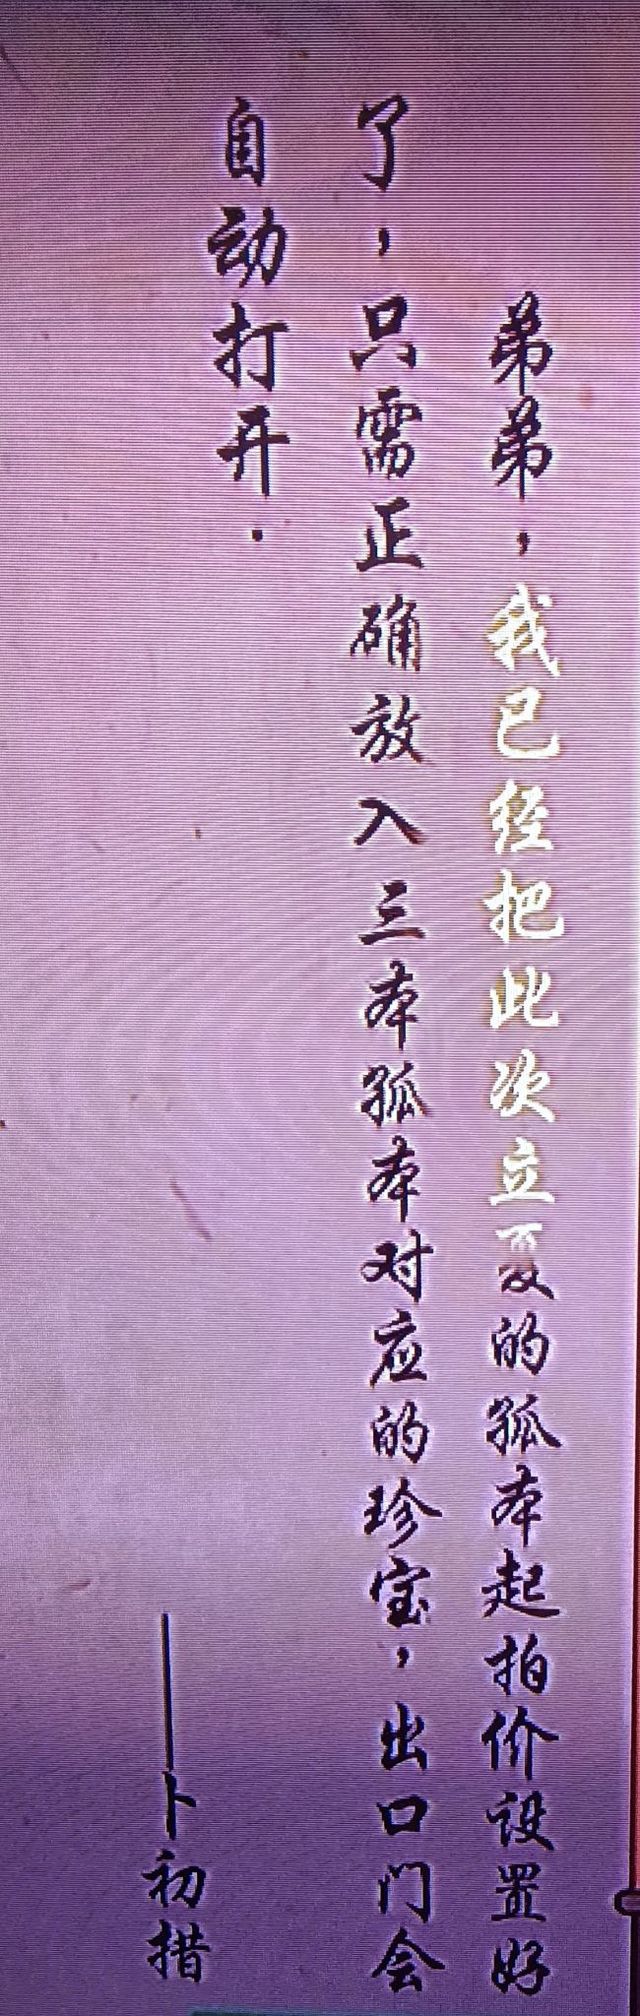 弟弟，我已经把此次立夏的孤本起拍价设置好
了，只需正确放入三本孤本对应的珍宝，出口门会
自动打开.
——卜初措